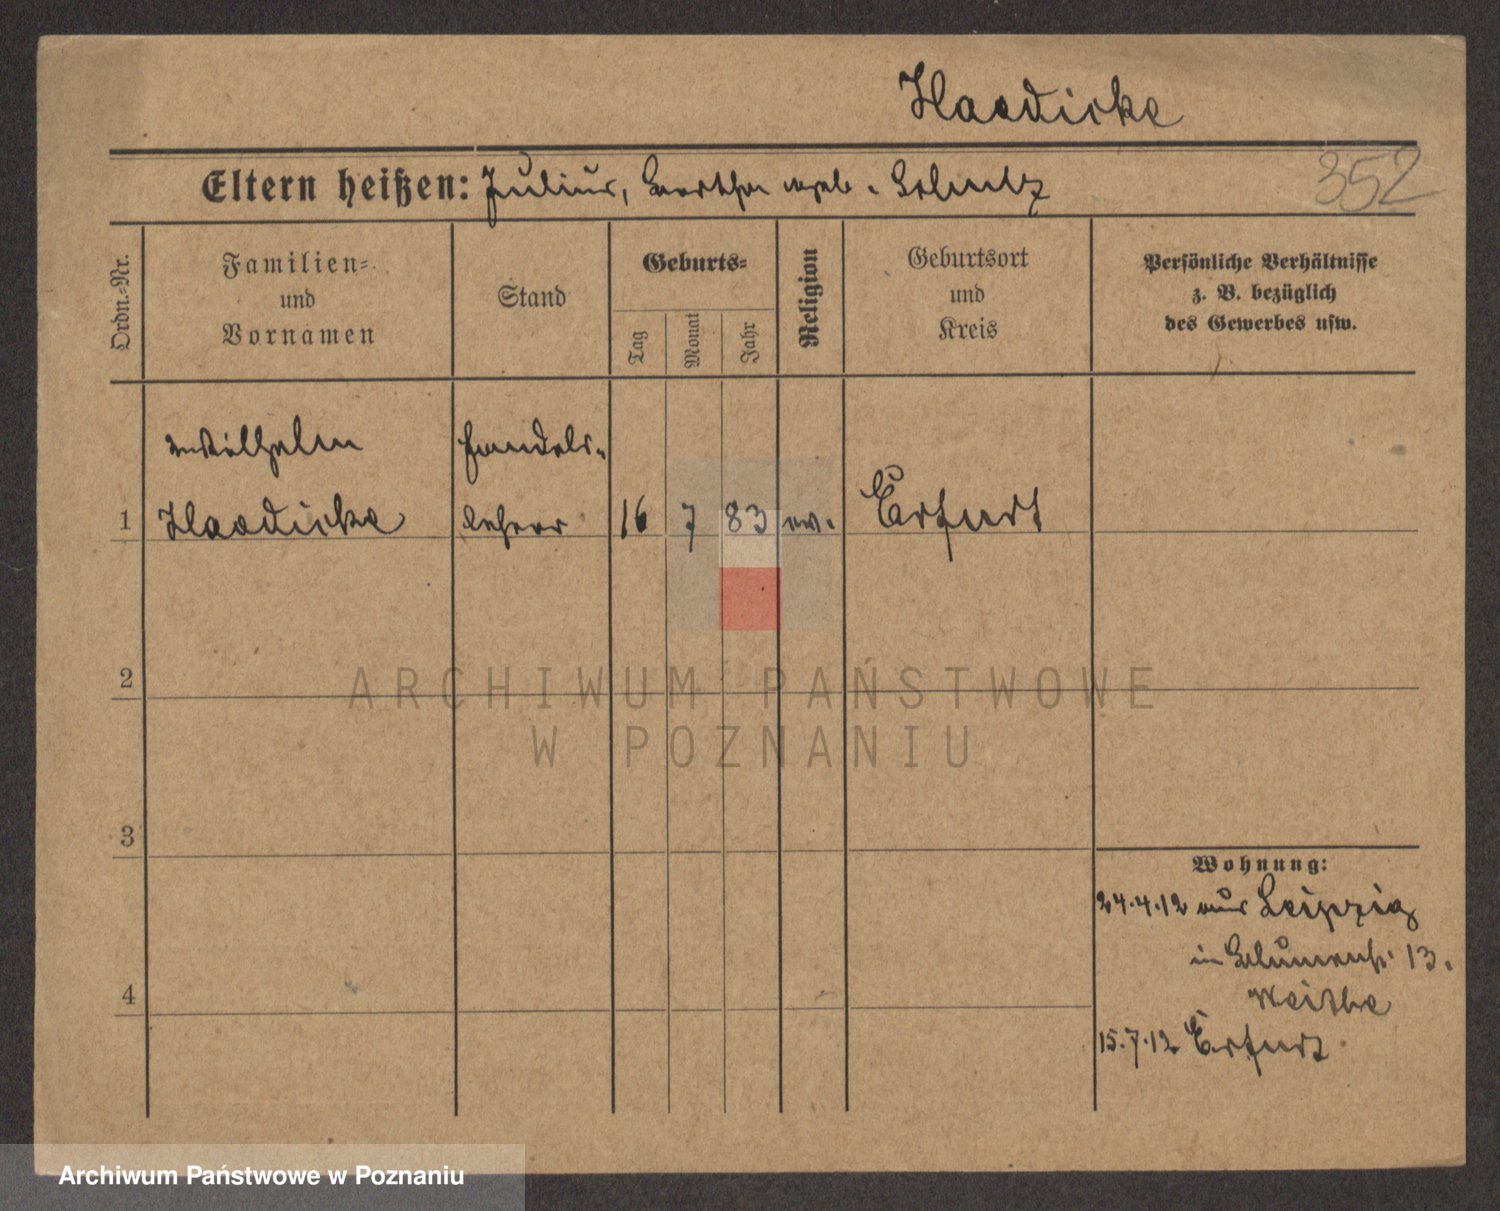 Haedicke
352
Eltern heißen: Julius, Bertha geb.
Ordn.-Nr.
Familien-
und
Vornamen
Stand
Geburts-
Tag
Monat
Jahr
Religion
Geburtsort
und
Kreis
Persönliche Verhältnisse
z. B. bezüglich
des Gewerbes usw.
Wilhelm
Handels-
1 Haedicke lehrer 16 7 83 ev. Erfurt
2
ARCHIWUM PAŃSTWOWE
W POZNANIU
3
Wohnung:
24.4.12 aus Leipzig
in Blumenstr. 13.
4
15.7.12 Erfurt
Archiwum Państwowe w Poznaniu